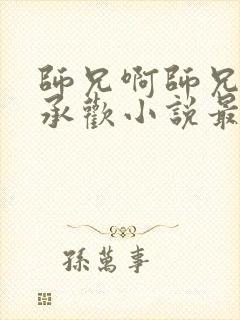 師兄啊師兄
承歡小說最
孫萬事